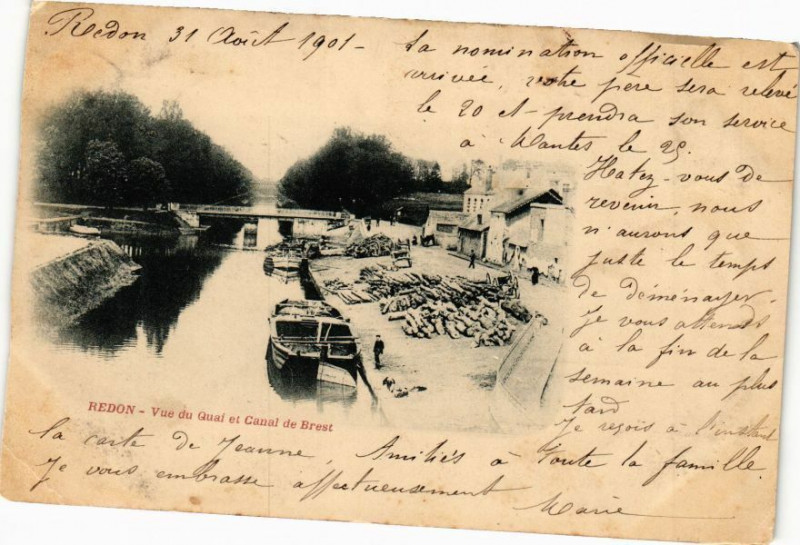 Redon 31 Août 1901 - La nomination officielle est
arrivée, votre père sera relevé
le 20 et prendra son service
à Nantes le 25.
Hatez-vous de
revenir, nous
n'aurons que
juste le temps
de déménager.
Je vous attends
à la fin de la
semaine au plus
tard
Je reçois à l'instant
la carte de Jeanne, Amitiés à toute la famille.
Je vous embrasse affectueusement
Marie
REDON - Vue du Quai et Canal de Brest